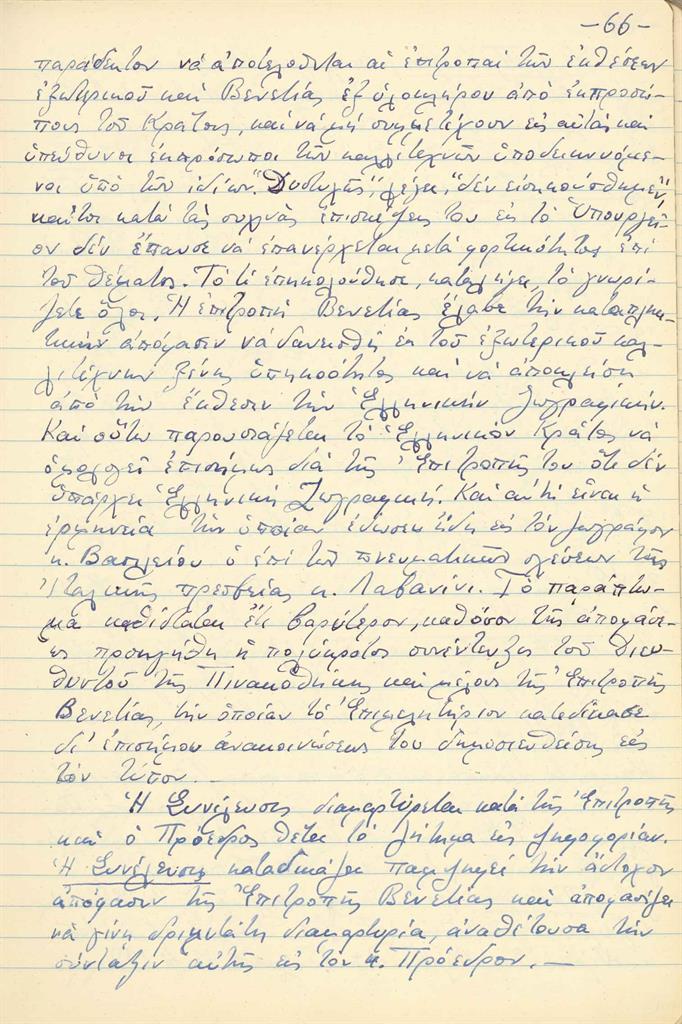 -66-
παράδεκτον νά ἀποτελοῦνται αἱ ἐπιτροπαί τῶν ἐκθέσεων
ἐξωτερικοῦ καί Βενετίας ἐξ ὁλοκλήρου ἀπό ἐκπροσώ-
πους τοῦ Κράτους, καί νά μή συμμετέχουν εἰς αὐτάς καί
ὑπεύθυνοι ἐκπρόσωποι τῶν καλλιτεχνῶν ὑποδεικνυόμε-
νοι ὑπό τῶν ἰδίων. "Δυστυχῶς", λέγει, "δέν εἰσηκούσθημεν",
καίτοι κατά τάς συχνάς ἐπισκέψεις του εἰς τό Ὑπουργεῖ-
ον δέν ἔπαυσε νά ἐπανέρχεται μετά φορτικότητος ἐπί
τοῦ θέματος. Τό τί ἐπηκολούθησε, καταλήγει, τό γνωρί-
ζετε ὅλοι. Ἡ ἐπιτροπή Βενετίας ἔλαβε τήν καταπλη-
κτικήν ἀπόφασιν νά δανεισθῇ ἐκ τοῦ ἐξωτερικοῦ καλ-
λιτέχνην ξένης ὑπηκοότητος καί νά ἀποκλείσῃ
ἀπό τήν ἔκθεσιν τήν Ἑλληνικήν Ζωγραφικήν.
Καί οὕτω παρουσιάζεται τό Ἑλληνικόν Κράτος νά
ὁμολογεῖ ἐπισήμως διά τῆς Ἐπιτροπῆς του ὅτι δέν
ὑπάρχει Ἑλληνική Ζωγραφική. Καί αὐτή εἶναι ἡ
ἑρμηνεία τήν ὁποίαν ἔδωσεν ἤδη εἰς τόν ζωγράφον
κ. Βασιλείου ὁ ἐπί τῶν πνευματικῶν σχέσεων τῆς
Ἰταλικῆς πρεσβείας κ. Λαβανίνι. Τό παράπτω-
μα καθίσταται ἔτι βαρύτερον, καθόσον τῆς ἀποφάσε-
ως προηγήθη ἡ πολύκροτος συνέντευξις τοῦ Διευ-
θυντοῦ τῆς Πινακοθήκης καί μέλους τῆς Ἐπιτροπῆς
Βενετίας, τήν ὁποίαν τό Ἐπιμελητήριον κατεδίκασε
δι' ἐπισήμου ἀνακοινώσεώς του δημοσιευθείσης εἰς
τόν τύπον. —
Ἡ Συνέλευσις διαμαρτύρεται κατά τῆς Ἐπιτροπῆς
καί ὁ Πρόεδρος θέτει τό ζήτημα εἰς ψηφοφορίαν.
Ἡ Συνέλευσις καταδικάζει παμψηφεί τήν ἄστοχον
ἀπόφασιν τῆς Ἐπιτροπῆς Βενετίας καί ἀποφασίζει
νά γίνῃ δριμυτάτη διαμαρτυρία, ἀναθέτουσα τήν
σύνταξιν αὐτῆς εἰς τόν κ. Πρόεδρον. —